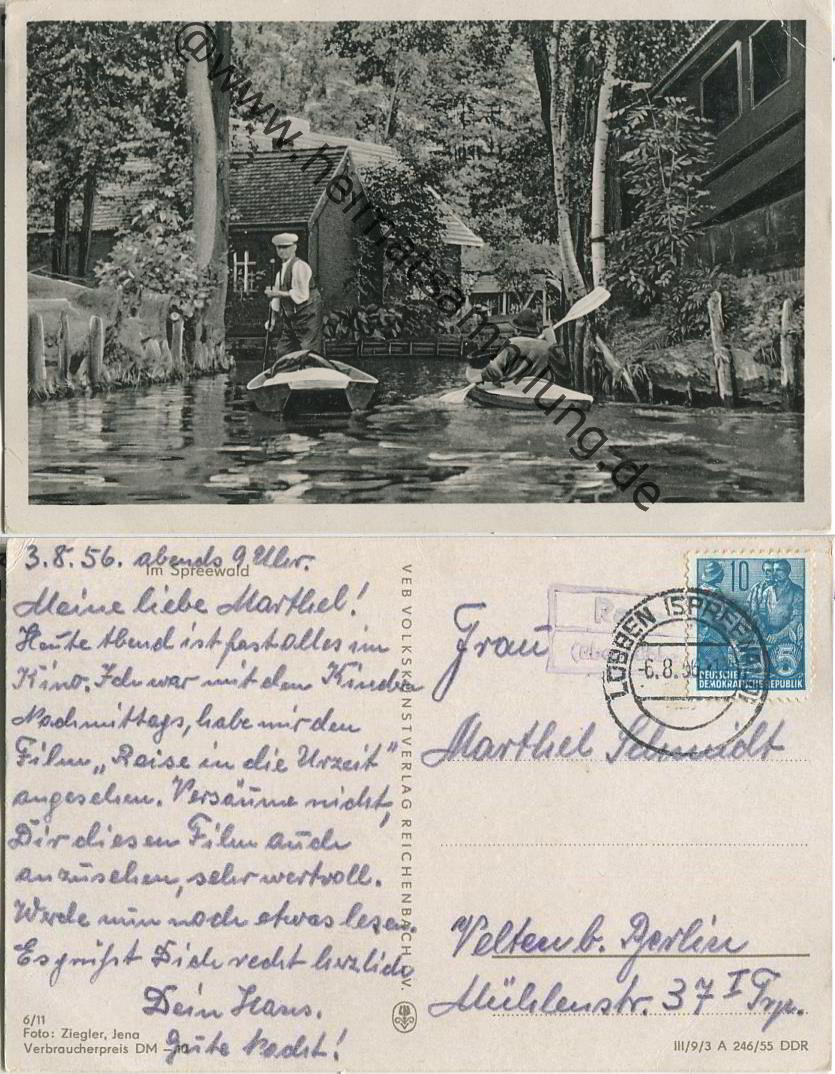 @www.heimatsammlung.de
3.8.56. abends 9 Uhr.
Im Spreewald
Meine liebe Marthel!
Heute Abend ist fast alles im
Kino. Ich war mit den Kindern
Nachmittags, habe mir den
Film „Reise in die Urzeit"
angesehen. Versäume nicht,
Dir diesen Film auch
anzusehen, sehr wertvoll.
Werde nun noch etwas lesen.
Es grüßt Dich recht herzlich
Dein Hans.
Gute Nacht!
6/11
Foto: Ziegler, Jena
Verbraucherpreis DM
VEB VOLKSKUNSTVERLAG REICHENBACH i. V.
10
5
DEUTSCHE
DEMOKRATISCHE REPUBLIK
LÜBBEN (SPREEWALD)
-6.8.56
Frau
Marthel Schmidt
Velten b. Berlin
Mühlenstr. 37 I Trp.
III/9/3 A 246/55 DDR